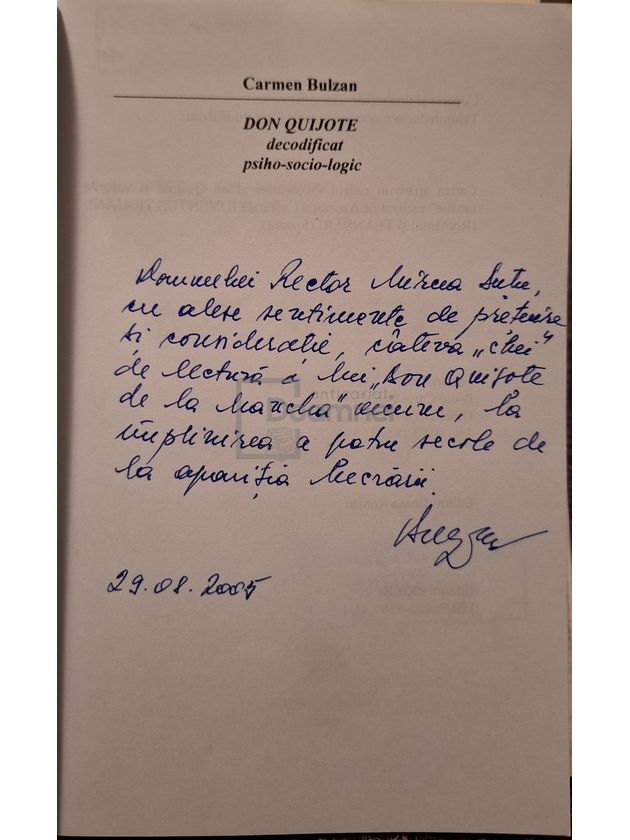 Carmen Bulzan
DON QUIJOTE
decodificat
psiho-socio-logic
Domnului Rector Mircea Dutu,
cu alese sentimente de prețuire
și considerație, câteva „chei"
de lectură a lui „Don Quijote
de la Mancha" acum, la
împlinirea a patru secole de
la apariția lucrării.
29.08.2005
anticariat
Doamnei